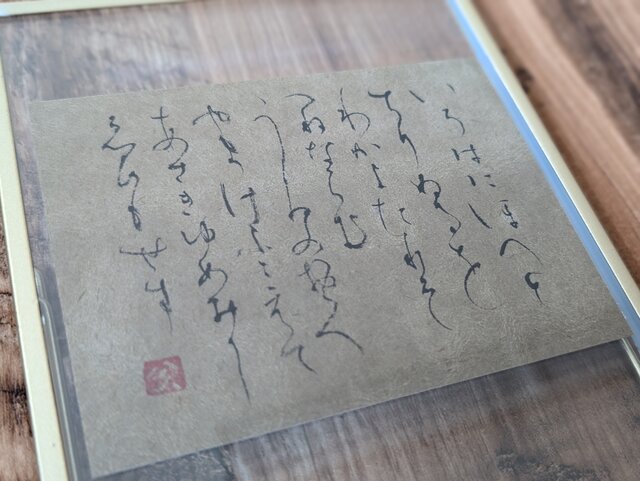 いろはにほへと
ちりぬるを
わかよたれそ
つねならむ
うゐのおくへ
やまけふこえて
あさきゆめみし
ゑひもせす